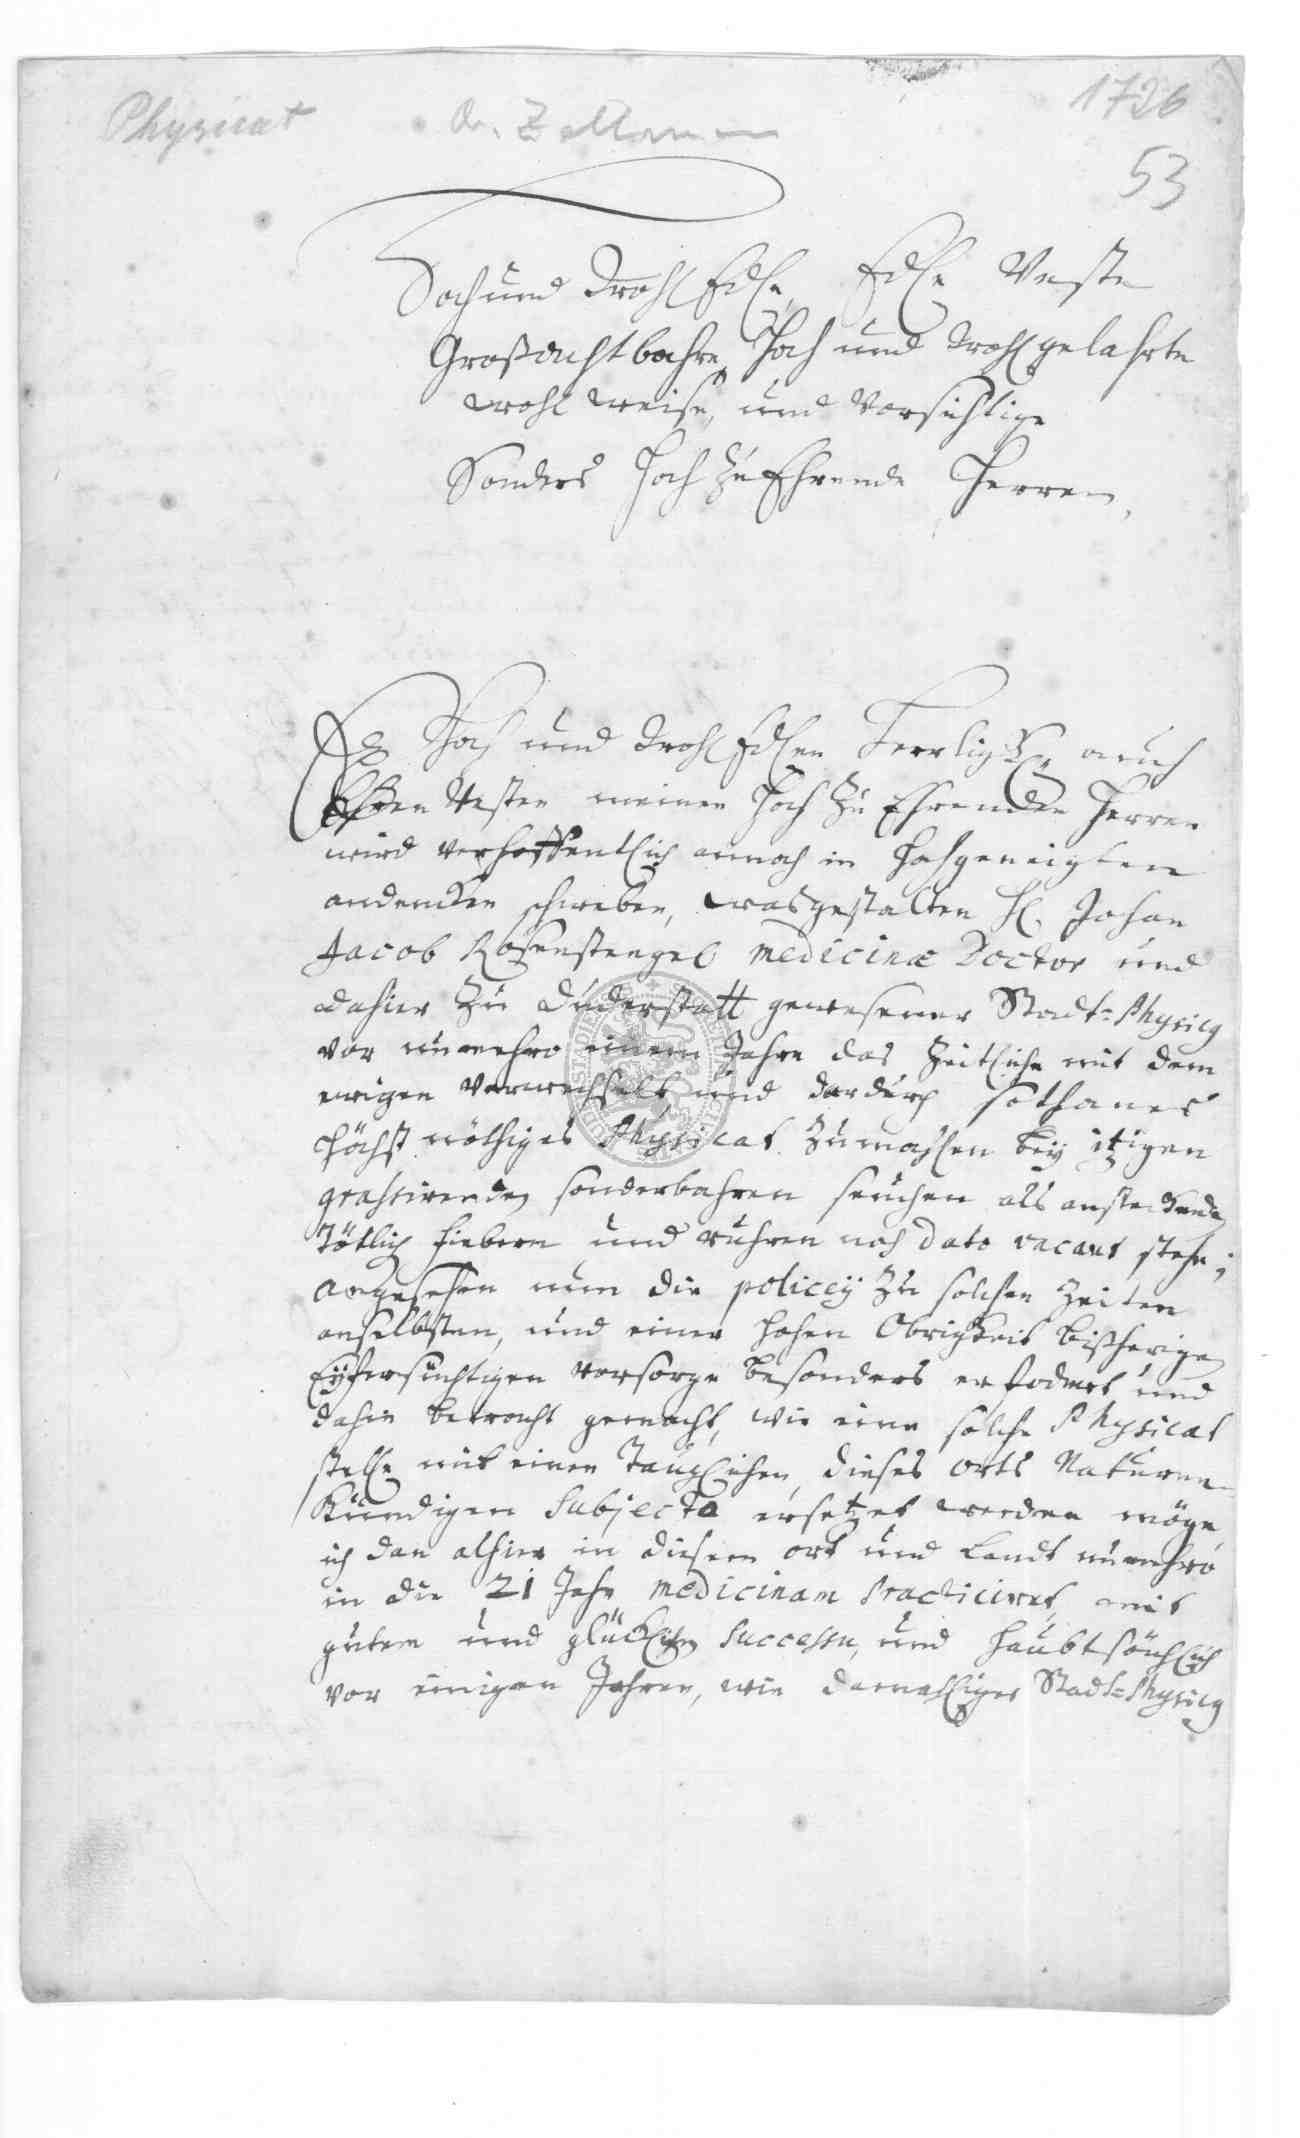 Physicat Dr. Zellmann 1726
53
Hoch und Wohl Edle, Edle Veste
Großachtbahre, Hoch und Wohlgelahrte
wohl weise, und Vorsichtige
Sonders Hoch zu Ehrende Herren,
Ew. Hoch und Wohl Edlen Herrligk. auch
Edlen Vesten meinen Hoch zu Ehrenden Herren
wird verhoffentlich annoch in Hochgeneigten
andencken schweben, wasgestalten H. Johan
Jacob Rosenstengel medicinæ Doctor und
dahier zu Duderstatt gewesener Stadt-Physicus
vor nunmehro einem Jahre das Zeitliche mit dem
ewigen verwechselt, und dardurch sothanes
höchst nöthiges Physicat zumahlen bey itzigen
grassirenden sonderbahren seuchen als ansteckende
tötlich fiebern und ruhren noch dato vacant stehe;
angesehen nun die policey zu solchen Zeiten
anselbsten, und einer hohen Obrigkeit bißherige
Eyfersüchtigen vorsorge besonders erfodert und
dahin betracht gemacht, wie eine solche Physicat
stelle mit einen Tauglichen, dieses orts Naturen-
Kündigen Subjecto ersetzet werden möge,
ich dan alhier in diesem ort und Landt nunmehro
in die 21 Jahr medicinam Practiciret, mit
gutem und glücklichen successu, und haubtsächlich
vor einigen Jahren, wie damahliger Stadt-Physicus